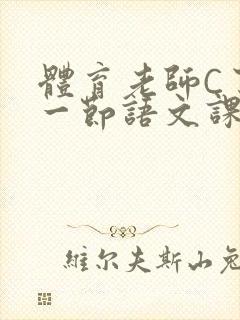 體育老師C
一節語文課
維尔夫斯山兔